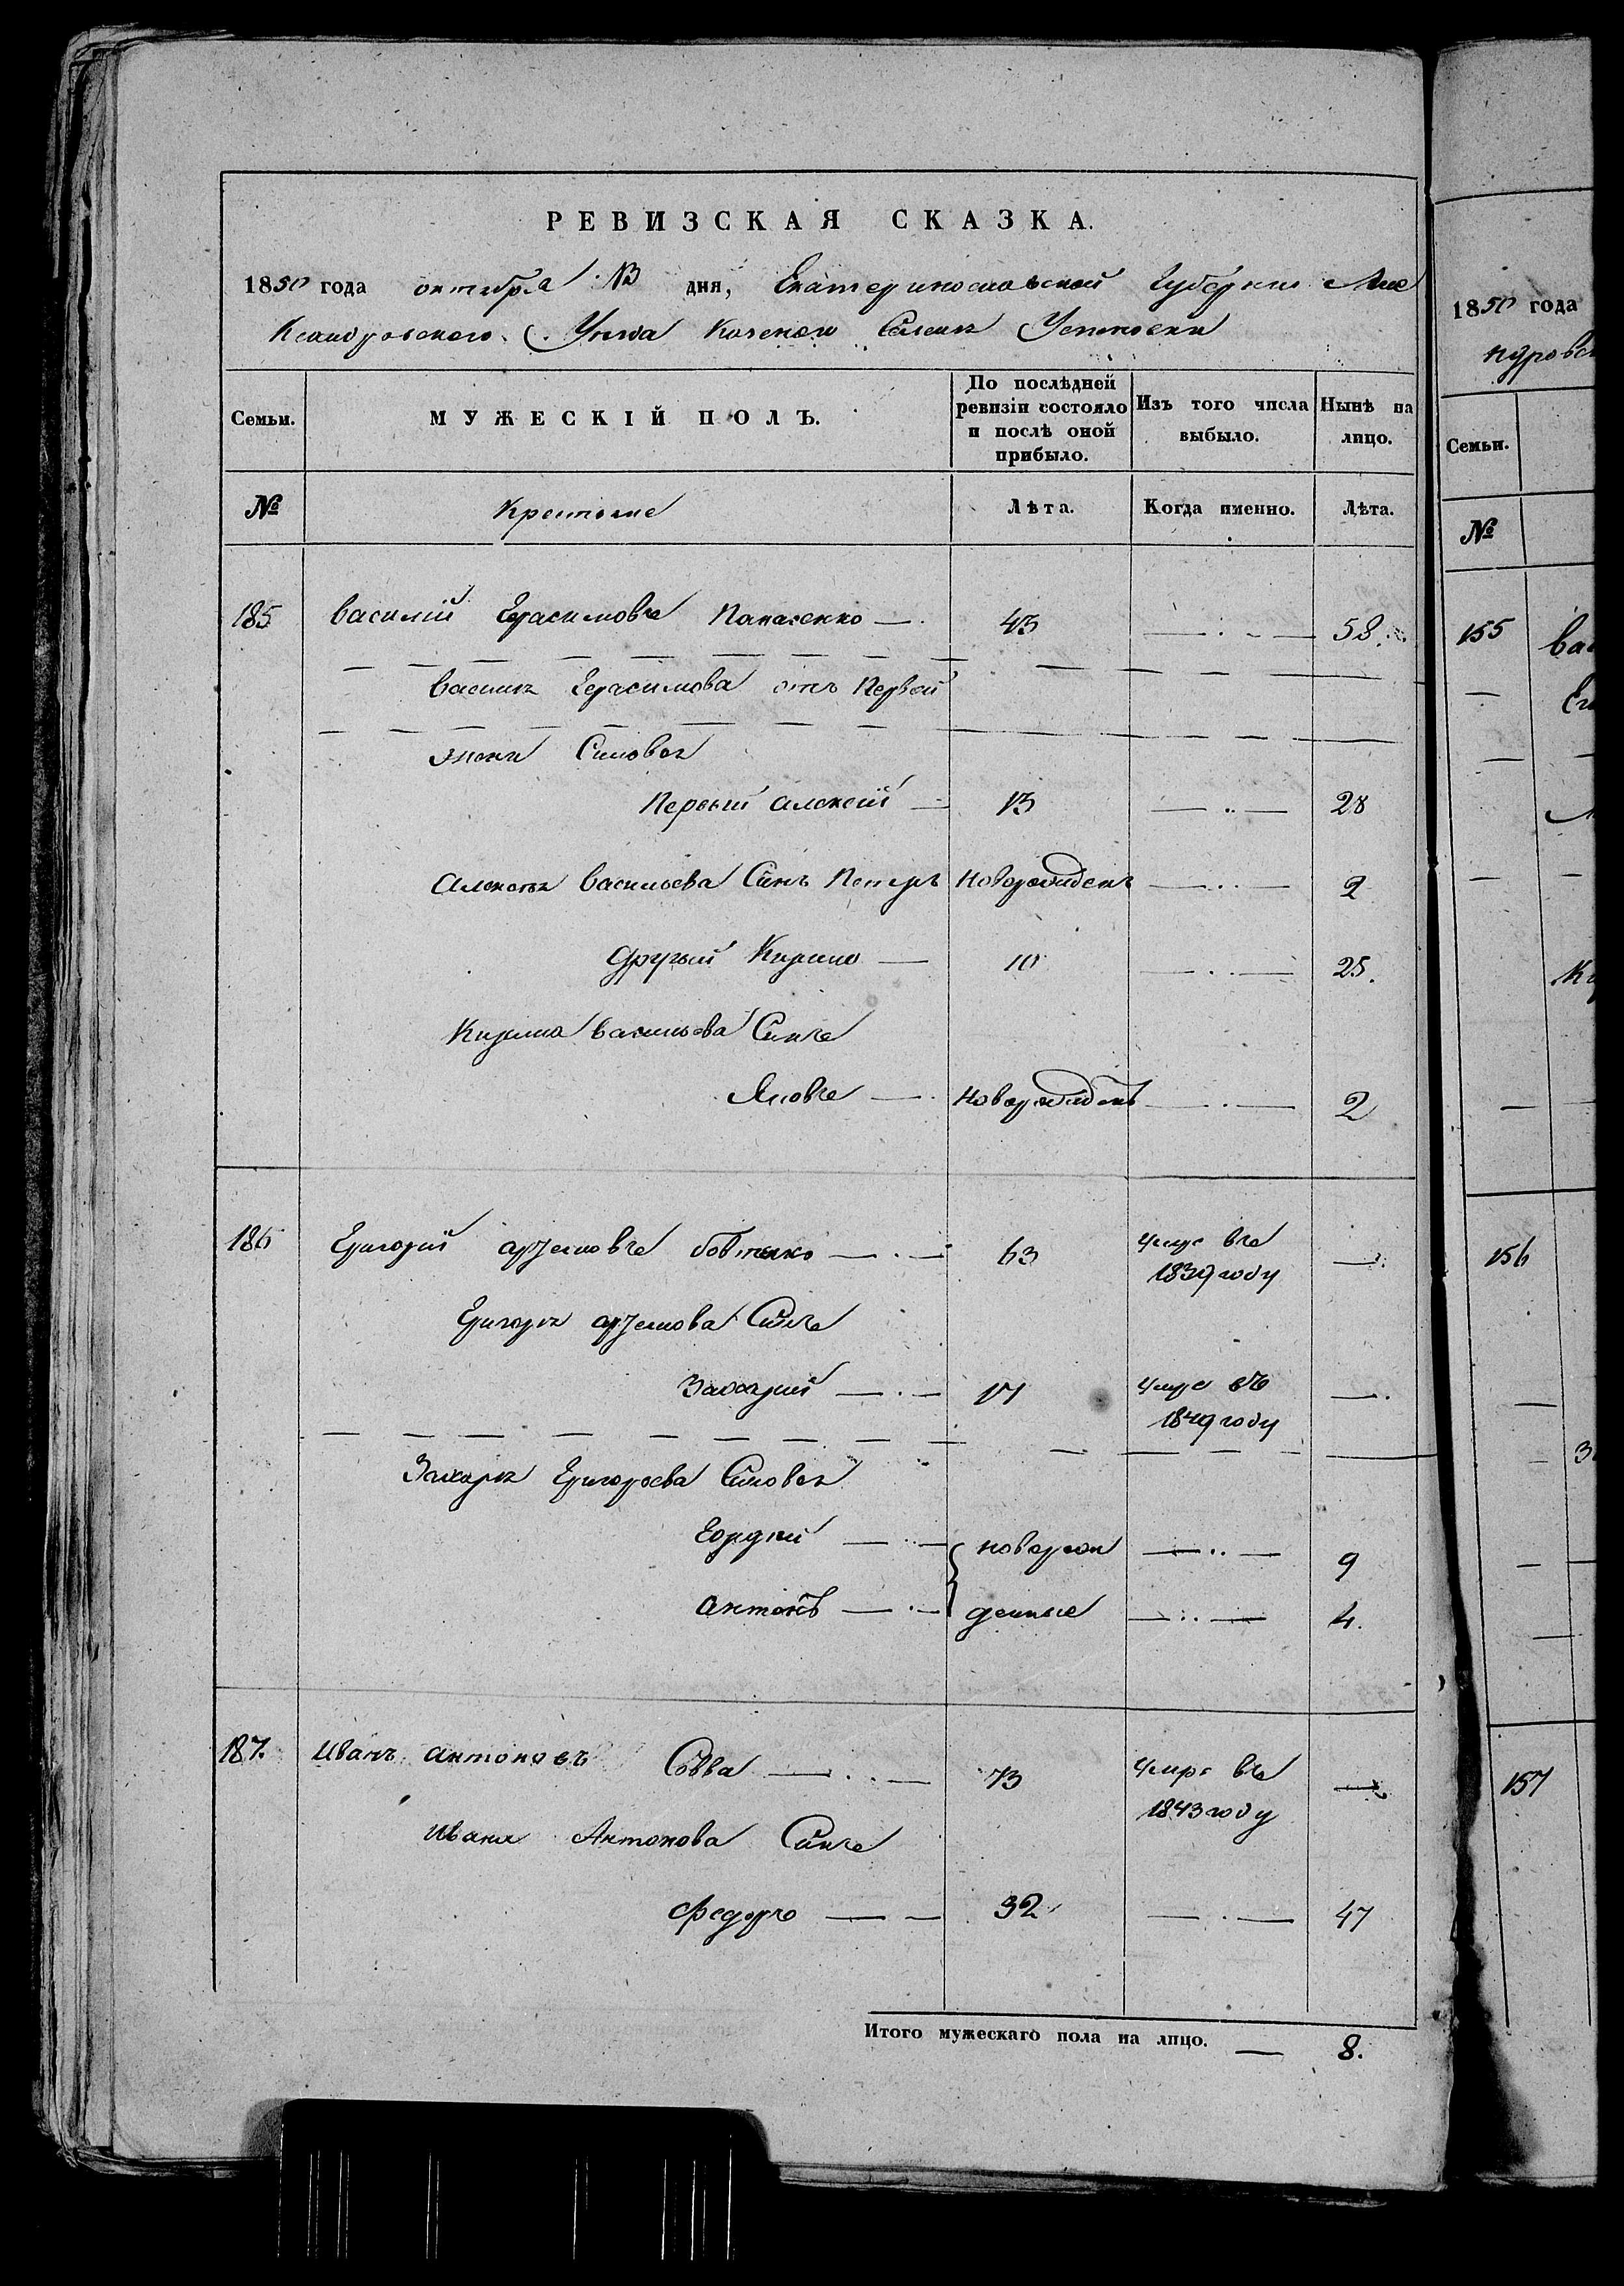 РЕВИЗСКАЯ СКАЗКА.
1850 года октября 13 дня, Екатеринославской Губернии Але
Ксандровского Уезда Казенной Селенія
Семьи. МУЖЕСКІЙ ПОЛЪ. По послѣдней ревизіи состояло и послѣ оной прибыло. Изъ того числа выбыло. Нынѣ на лицо.
№ Крестьяне Лѣта. Когда именно. Лѣта.
185 Василій Герасимовъ Панасенко 43 58.
Василія Герасимова отъ Первой
жены Сыновья
Первый Алексѣй 13 28
Алексѣя Васильева Сынъ Петръ Новорожденъ 2
Другый Кирило 10 25.
Кирила Васильева Сынъ
Яковъ Новорожденъ 2
186 Григорій Артемовъ Бовтенко 63 умре въ
1839 году
Григорія Артемова Сынъ
Захарій 17 умре въ
1849 году
Захарія Григорьева Сыновья
Гордѣй новорож 9
Антонъ денные 4.
187. Иванъ Антоновъ Савва 73 умре въ
1843 году
Ивана Антонова Сынъ
Федоръ 32 47
Итого мужескаго пола на лицо. 8.
1850 года
Семьи.
№
155
156
157